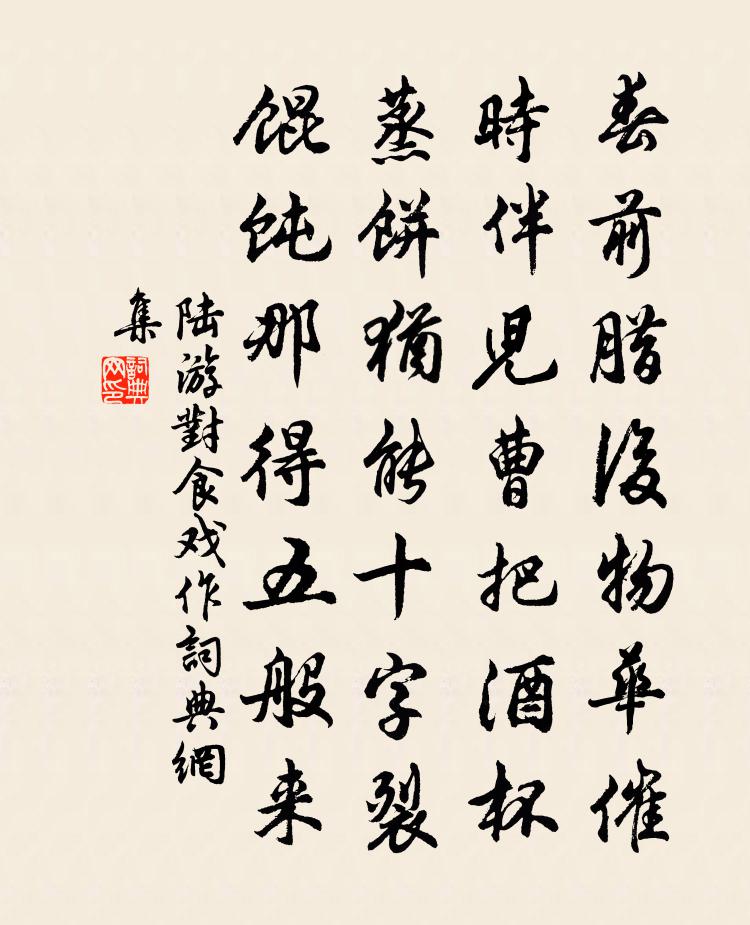 春前臘後物華催
時伴兒曹把酒杯
蒸餅猶能十字裂
餛飩那得五般来
陆游對食戏作詞典網
集
詞典
网印